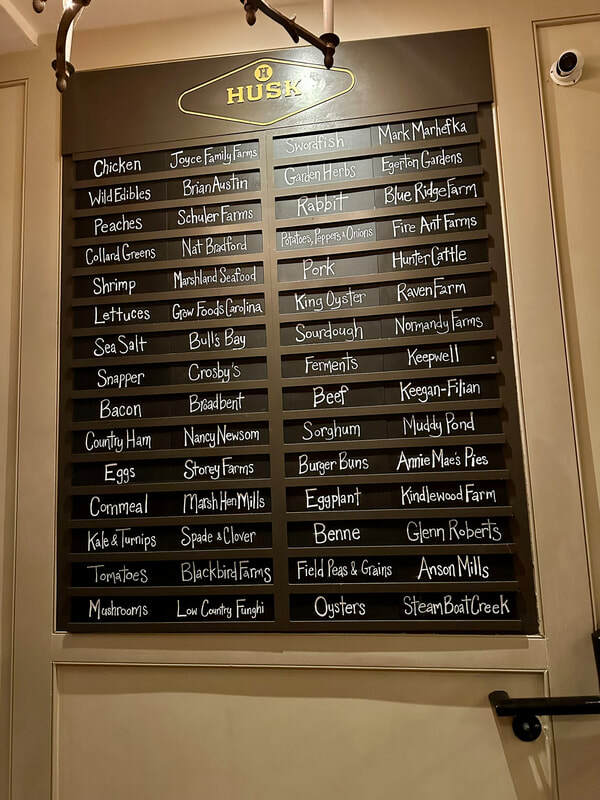 H
HUSK
Chicken Joyce Family Farms
Wild Edibles Brian Austin
Peaches Schuler Farms
Collard Greens Nat Bradford
Shrimp Marshland Seafood
Lettuces Grow Foods Carolina
Sea Salt Bulls Bay
Snapper Crosby's
Bacon Broadbent
Country Ham Nancy Newsom
Eggs Storey Farms
Cornmeal Marsh Hen Mills
Kale & Turnips Spade & Clover
Tomatoes Blackbird Farms
Mushrooms Low Country Funghi
Swordfish Mark Marhefka
Garden Herbs Egerton Gardens
Rabbit Blue Ridge Farm
Potatoes, Peppers, & Onions Fire Ant Farms
Pork Hunter Cattle
King Oyster Raven Farm
Sourdough Normandy Farms
Ferments Keepwell
Beef Keegan-Filian
Sorghum Muddy Pond
Burger Buns Annie Mae's Pies
Eggplant Kindlewood Farm
Benne Glenn Roberts
Field Peas & Grains Anson Mills
Oysters Steam Boat Creek